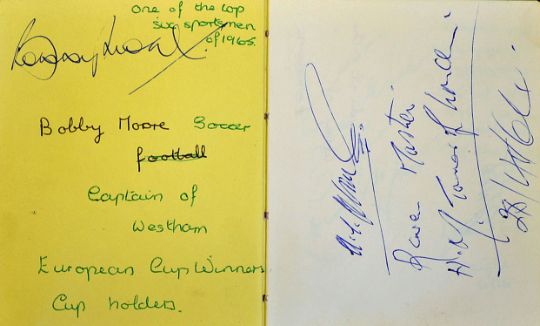 one of the top
six sportsmen
of 1965.
Bobby Moore
Bobby Moore Soccer
football
Captain of
Westham
European Cup Winners
Cup holders.
Raven Master.
H.M. Tower of London.